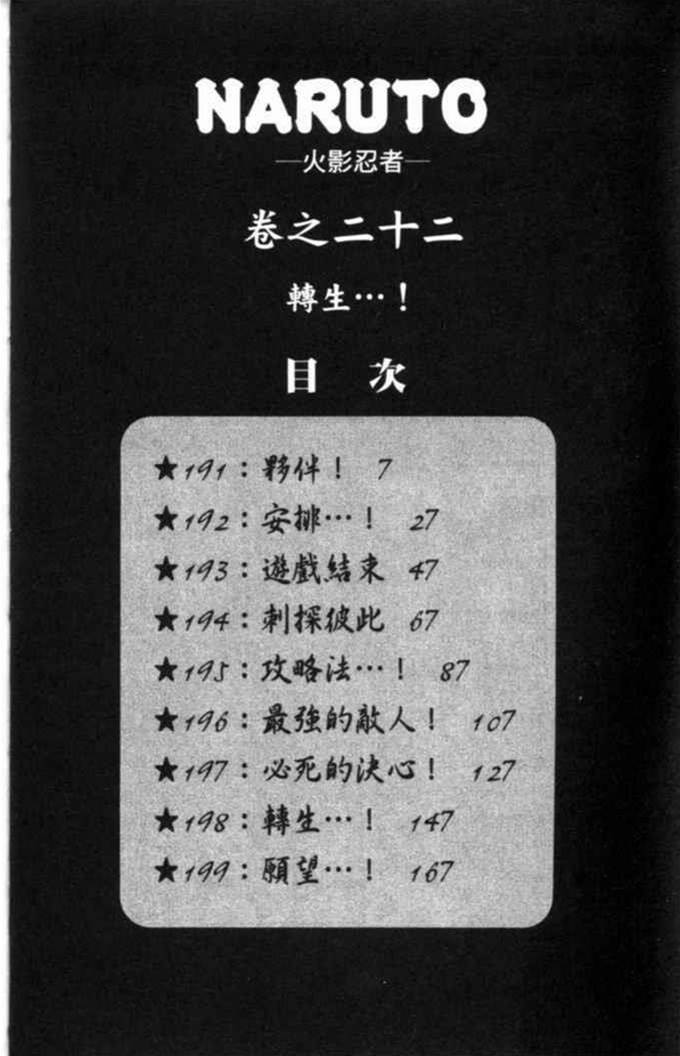 NARUTO
—火影忍者—
卷之二十二
轉生…！
目 次
★191：夥伴！ 7
★192：安排…！ 27
★193：遊戲結束 47
★194：刺探彼此 67
★195：攻略法…！ 87
★196：最強的敵人！ 107
★197：必死的決心！ 127
★198：轉生…！ 147
★199：願望…！ 167